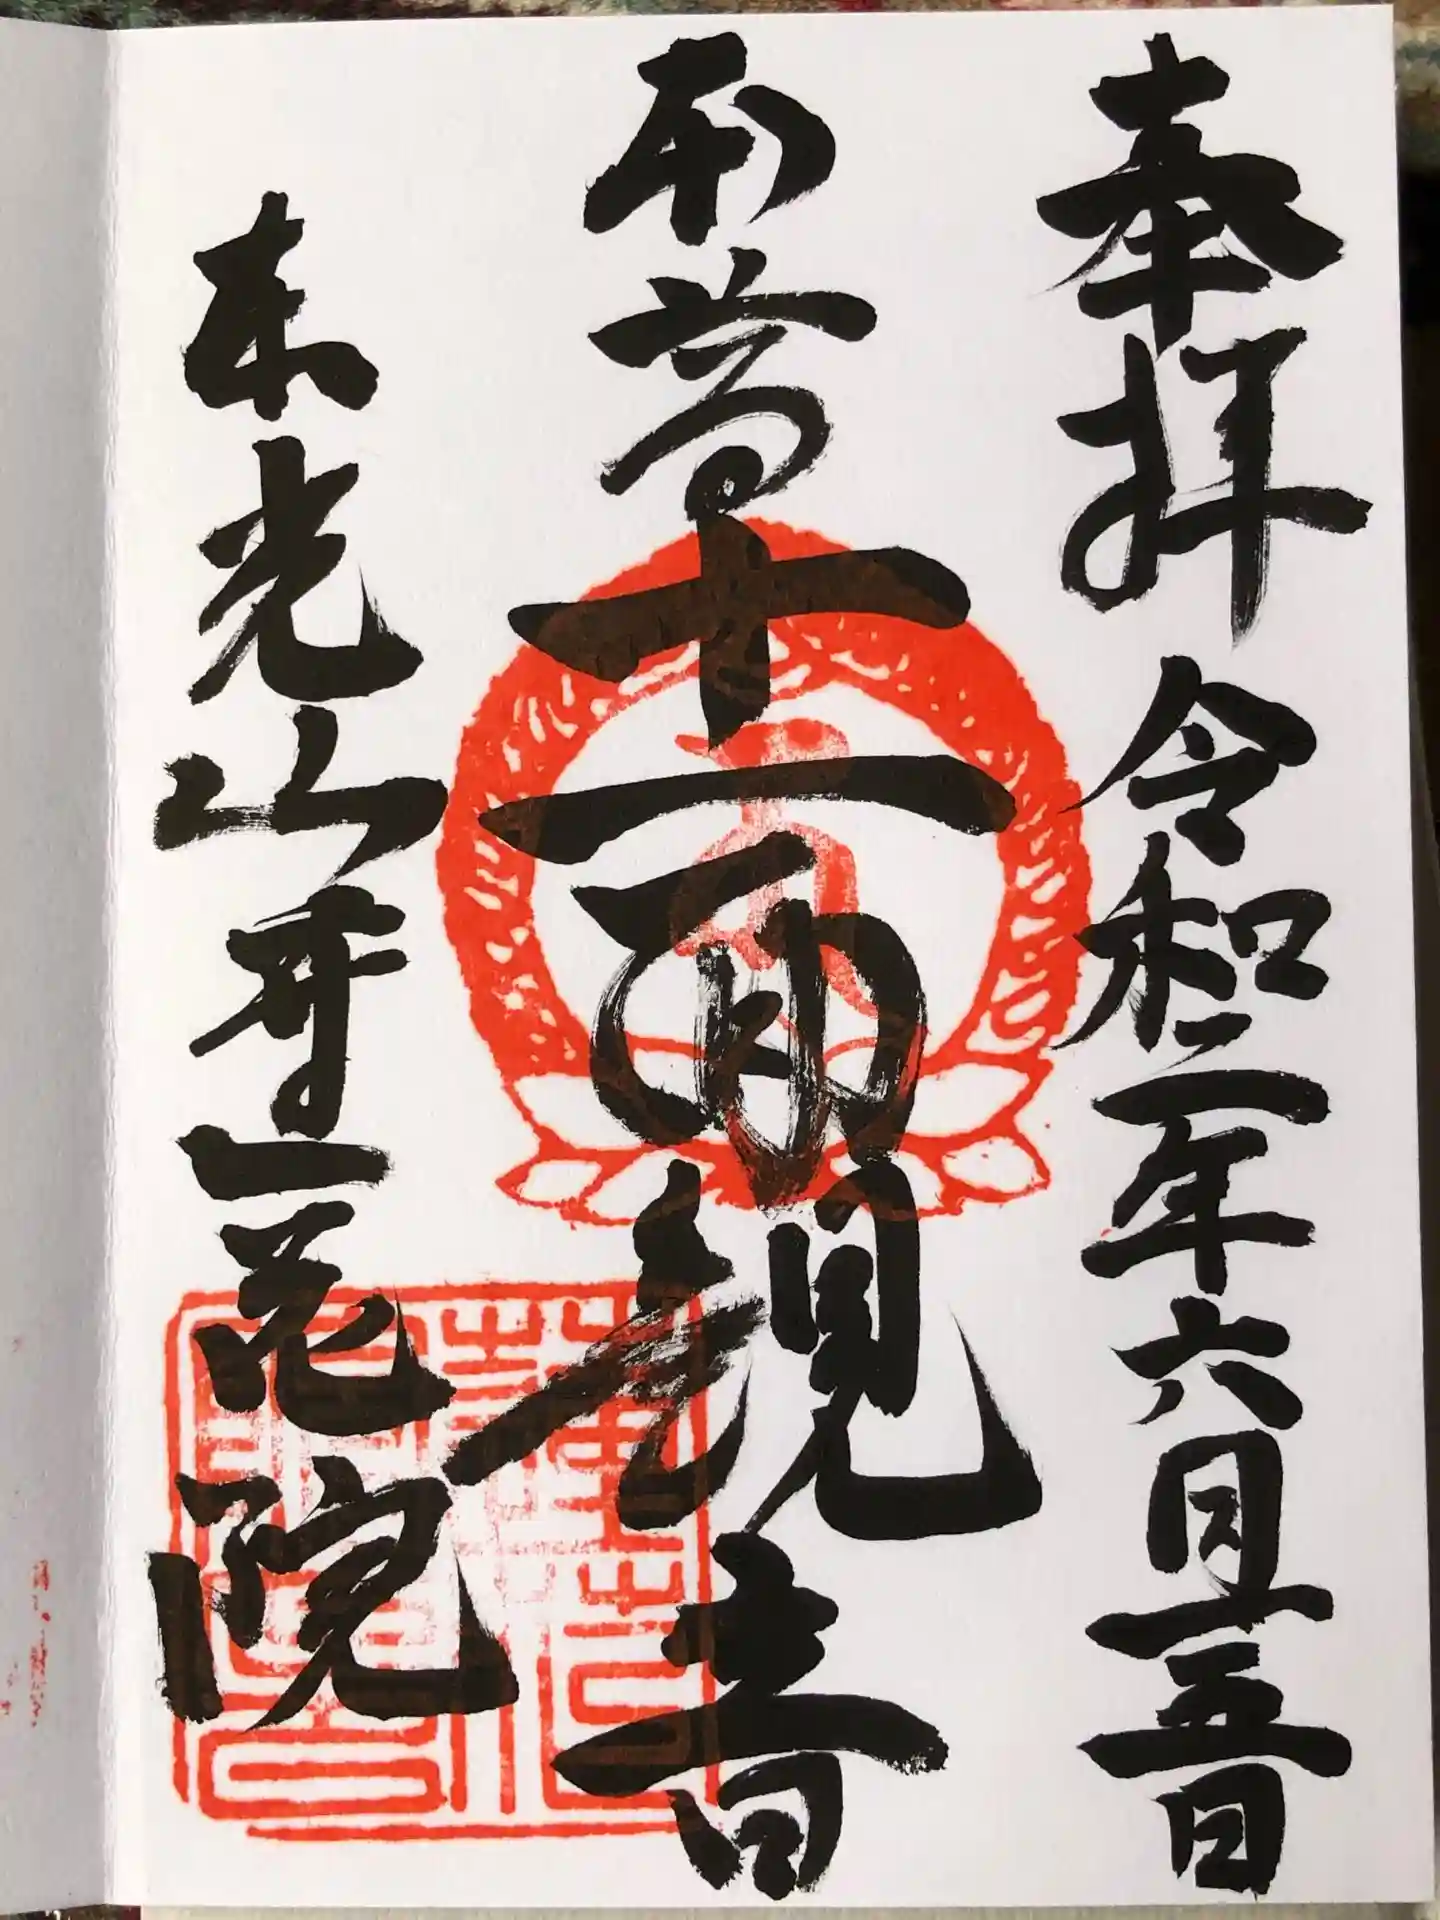 奉拝 令和二年六月五日
本尊十一面観音
東光山蓮花院